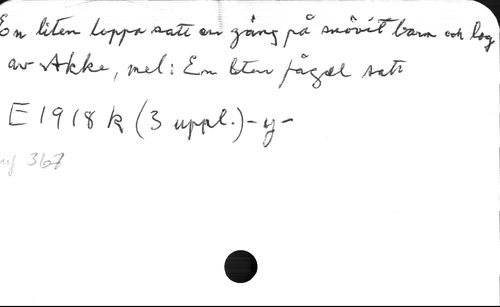 En liten loppa satt en gång på snövit barm och log
av Akke, mel: En liten fågel satt
E 1918 k (3 uppl.) - y -
367